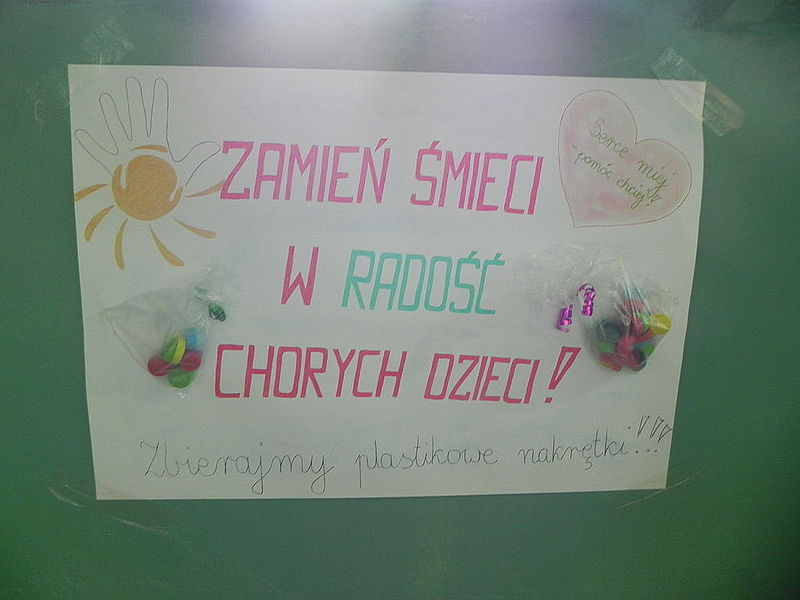 ZAMIEŃ ŚMIECI
W RADOŚĆ
CHORYCH DZIECI!
Zbierajmy plastikowe nakrętki!!!
Serce miej
pomóc chciej!